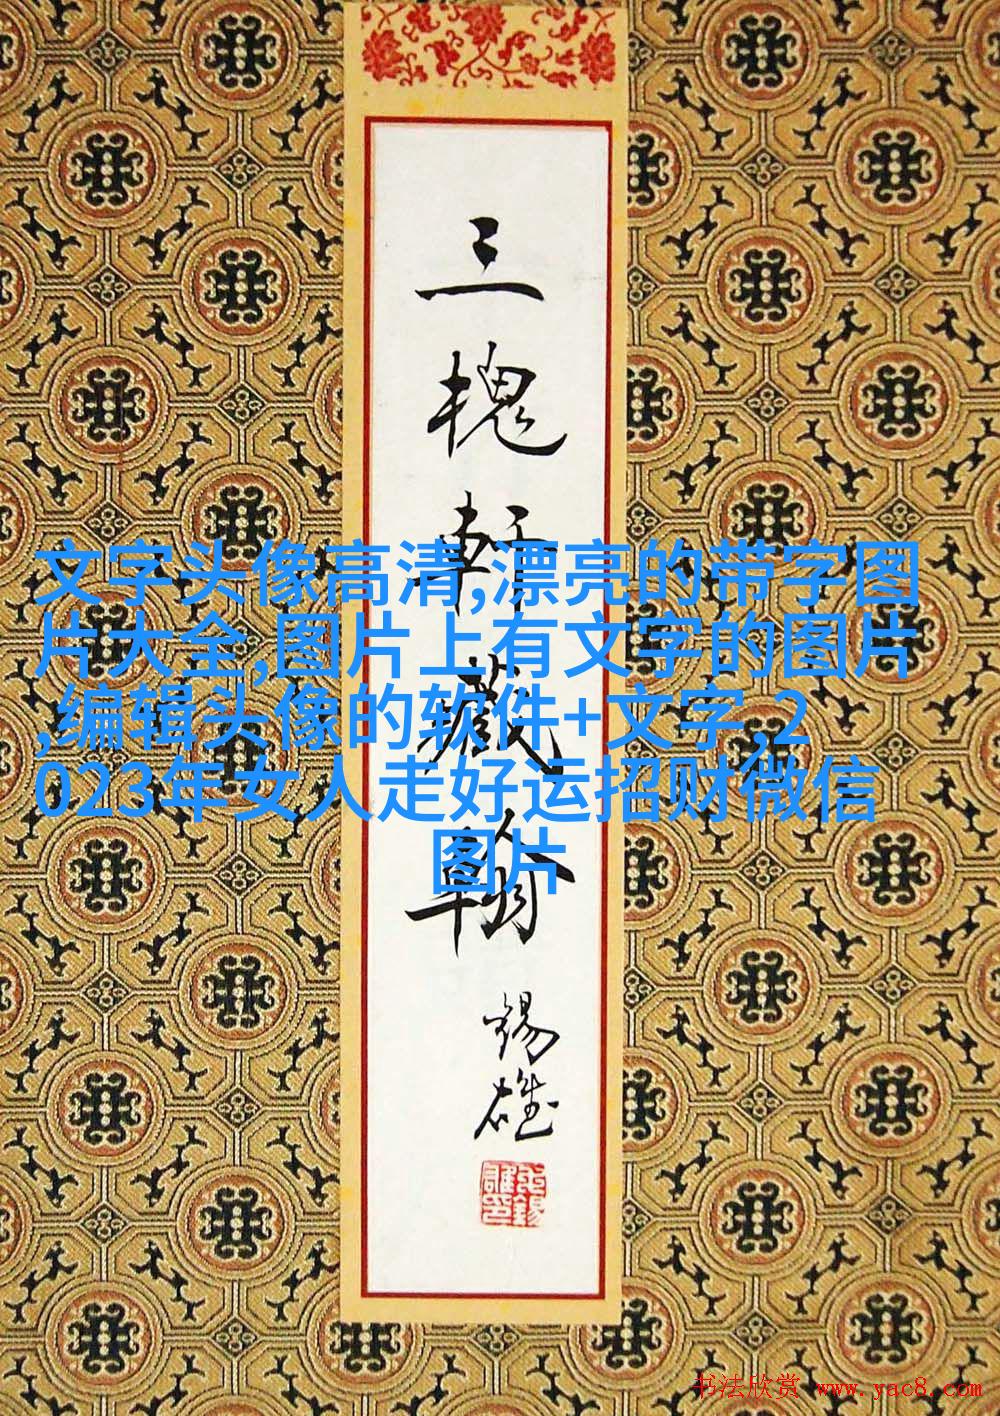 三槐軒藏翰
锡雄
文字头像高清,漂亮的带字图
片大全,图片上有文字的图片
,编辑头像的软件+文字,2
023年女人走好运招财微信
图片
书法欣赏 www.yac8.com